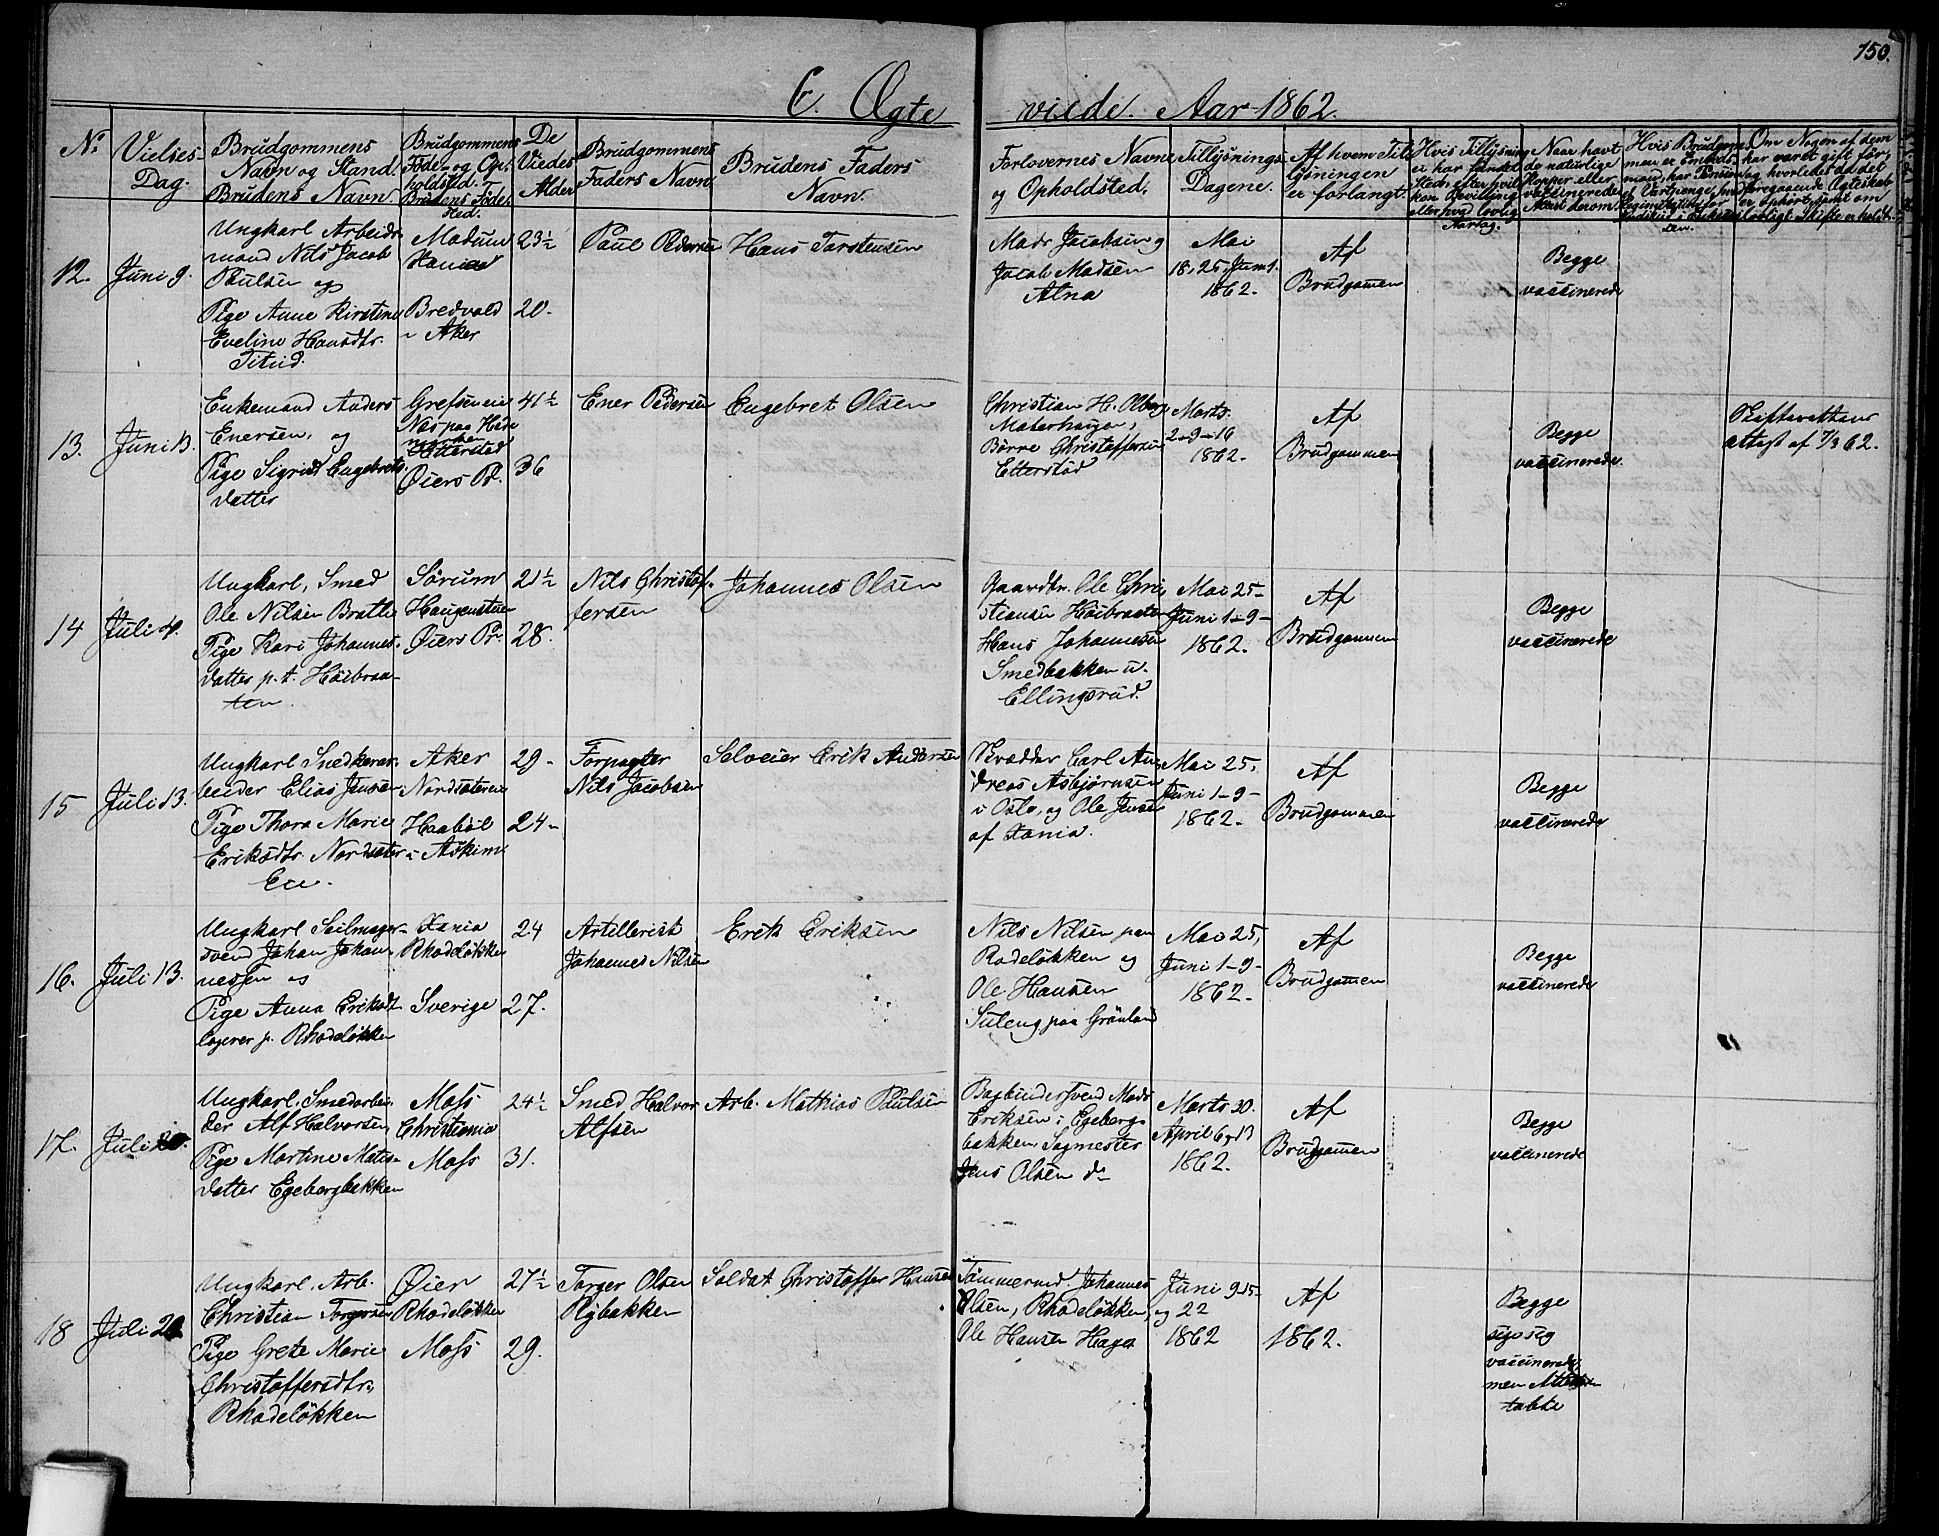 150.
C. Ægte viede. Aar 1862.
No
Vielses-
Dag.
Brudgommens
Navn og Stand.
Brudens Navn.
Brudgommens
Føde- og Op-
holdsted.
Brudens Føde-
sted.
De
Viedes
Alder
Brudgommens
Faders Navn.
Brudens Faders
Navn.
Forlovernes Navne
og Opholdsted.
Tillysnings-
Dagene.
Af hvem Til-
lysningen
er forlangt.
Hvis Tillysning
ei har fundet
Sted, efter hvil-
ken Bevilling
eller hvad lovlig
Naar havt
de natürlige
Kopper eller
vaccinerede
Attest derom.
Hvis Brudgom-
men er Embeds-
mand, har
Om Nogen af dem
har været gift før,
og hvorledes da det
foregaaende Ægteskab
er ophørt, samt om
lovligt Skifte er holdt.
12.
Juni 9.
Ungkarl Arbeids-
mand Nils Jacob
Paulsen og
Pige Anne Kirstine
Eveline Hansdtr.
Modum
Xania
Bredvold
i Aker
23½
20.
Paul Pedersen
Hans Torstensen
Mads Jacobsen og
Jacob Madsen
Alna
Mai
18, 25, Juni 1.
1862.
Af
Brudgommen
Begge
vaccinerede
13.
Juni 13.
Enkemand Anders
Enersen, og
Pige Sigrid Engebrets-
datter
Grefsen eie
Næs paa Hede
marken
Etterstad
Øiers Pr.
41½
36
Ener Pedersen
Engebret Olsen
Christian H. Olberg
Materhaugen,
Børre Christoffersen
Etterstad
Marts.
2-9-16
1862.
Af
Brudgommen
Begge
vaccinerede
Skifterettens
Attest af 7/3 62.
14
Juli 4.
Ungkarl, Smed
Ole Nilsen Bratli
Pige Kari Johannes-
datter p. t. Høibraa-
ten.
Sørum
Haugenstuen
Øiers Pr.
21½
28.
Nils Christof-
fersen
Johannes Olsen
Gaardbr. Ole Chri-
stiansen Høibraaten
Hans Johannesen
Smedbakken u.
Ellingsrud.
Mai 25-
Juni 1-9-
1862.
Af
Brudgommen
Begge
vaccinerede
15
Juli 13.
Ungkarl Snedkerar-
beider Elias Jensen
Pige Thora Marie
Eriksdtr. Nordseter
Eie.
Aker
Nordsetereie
Haabøl
i Askim
29-
24-
Forpagter
Nils Jacobsen
Selveier Erik Andersen
Skrædder Carl An-
dreas Asbjørnsen
i Oslo, og Ole Jensen
af Xania.
Mai 25,
Juni 1-9-
1862.
Af
Brudgommen
Begge
vaccinerede
16.
Juli 13.
Ungkarl Seilmager-
svend Johan Johan-
nessen og
Pige Anna Eriksdt.
logerer p. Rhodeløkken
Xania
Rhodeløkken
Sverige
24
27.
Artillerist
Johannes Nilsen
Erik Eriksen
Nils Nilsen paa
Rodeløkken og
Ole Hansen
Suleng paa Grønland
Mai 25,
Juni 1-9-
1862.
Af
Brudgommen
Begge
vaccinerede
17.
Juli 20.
Ungkarl, Smedarbei-
der Alf Halvorsen
Pige Martine Mates-
datter Egebergbakken
Moss
Christiania
Moss
24½
31.
Smed Halvor
Alfsen
Arb. Mathias Paulsen
Bogbindersvend Mads
Eriksen i Egeberg-
bakken, Sagmester
Jens Olsen do
Marts 30.
April 6, 13
1862.
Af
Brudgommen
Begge
vaccinerede
18
Juli 20
Ungkarl. Arb.
Christian Torgersen
Pige Grete Marie
Christoffersdtr,
Rhodeløkken
Øier
Rhodeløkken
Moss
27½
29.
Torger Olsen
Rybakken
Soldat Christoffer Hansen
Tømmermd. Johannes
Olsen, Rhodeløkken,
Ole Hansen Hage
Juni 9-15-
og 22
1862
Af
1862.
Begge
sige sig
vaccinerede,
men Attesten
tabte